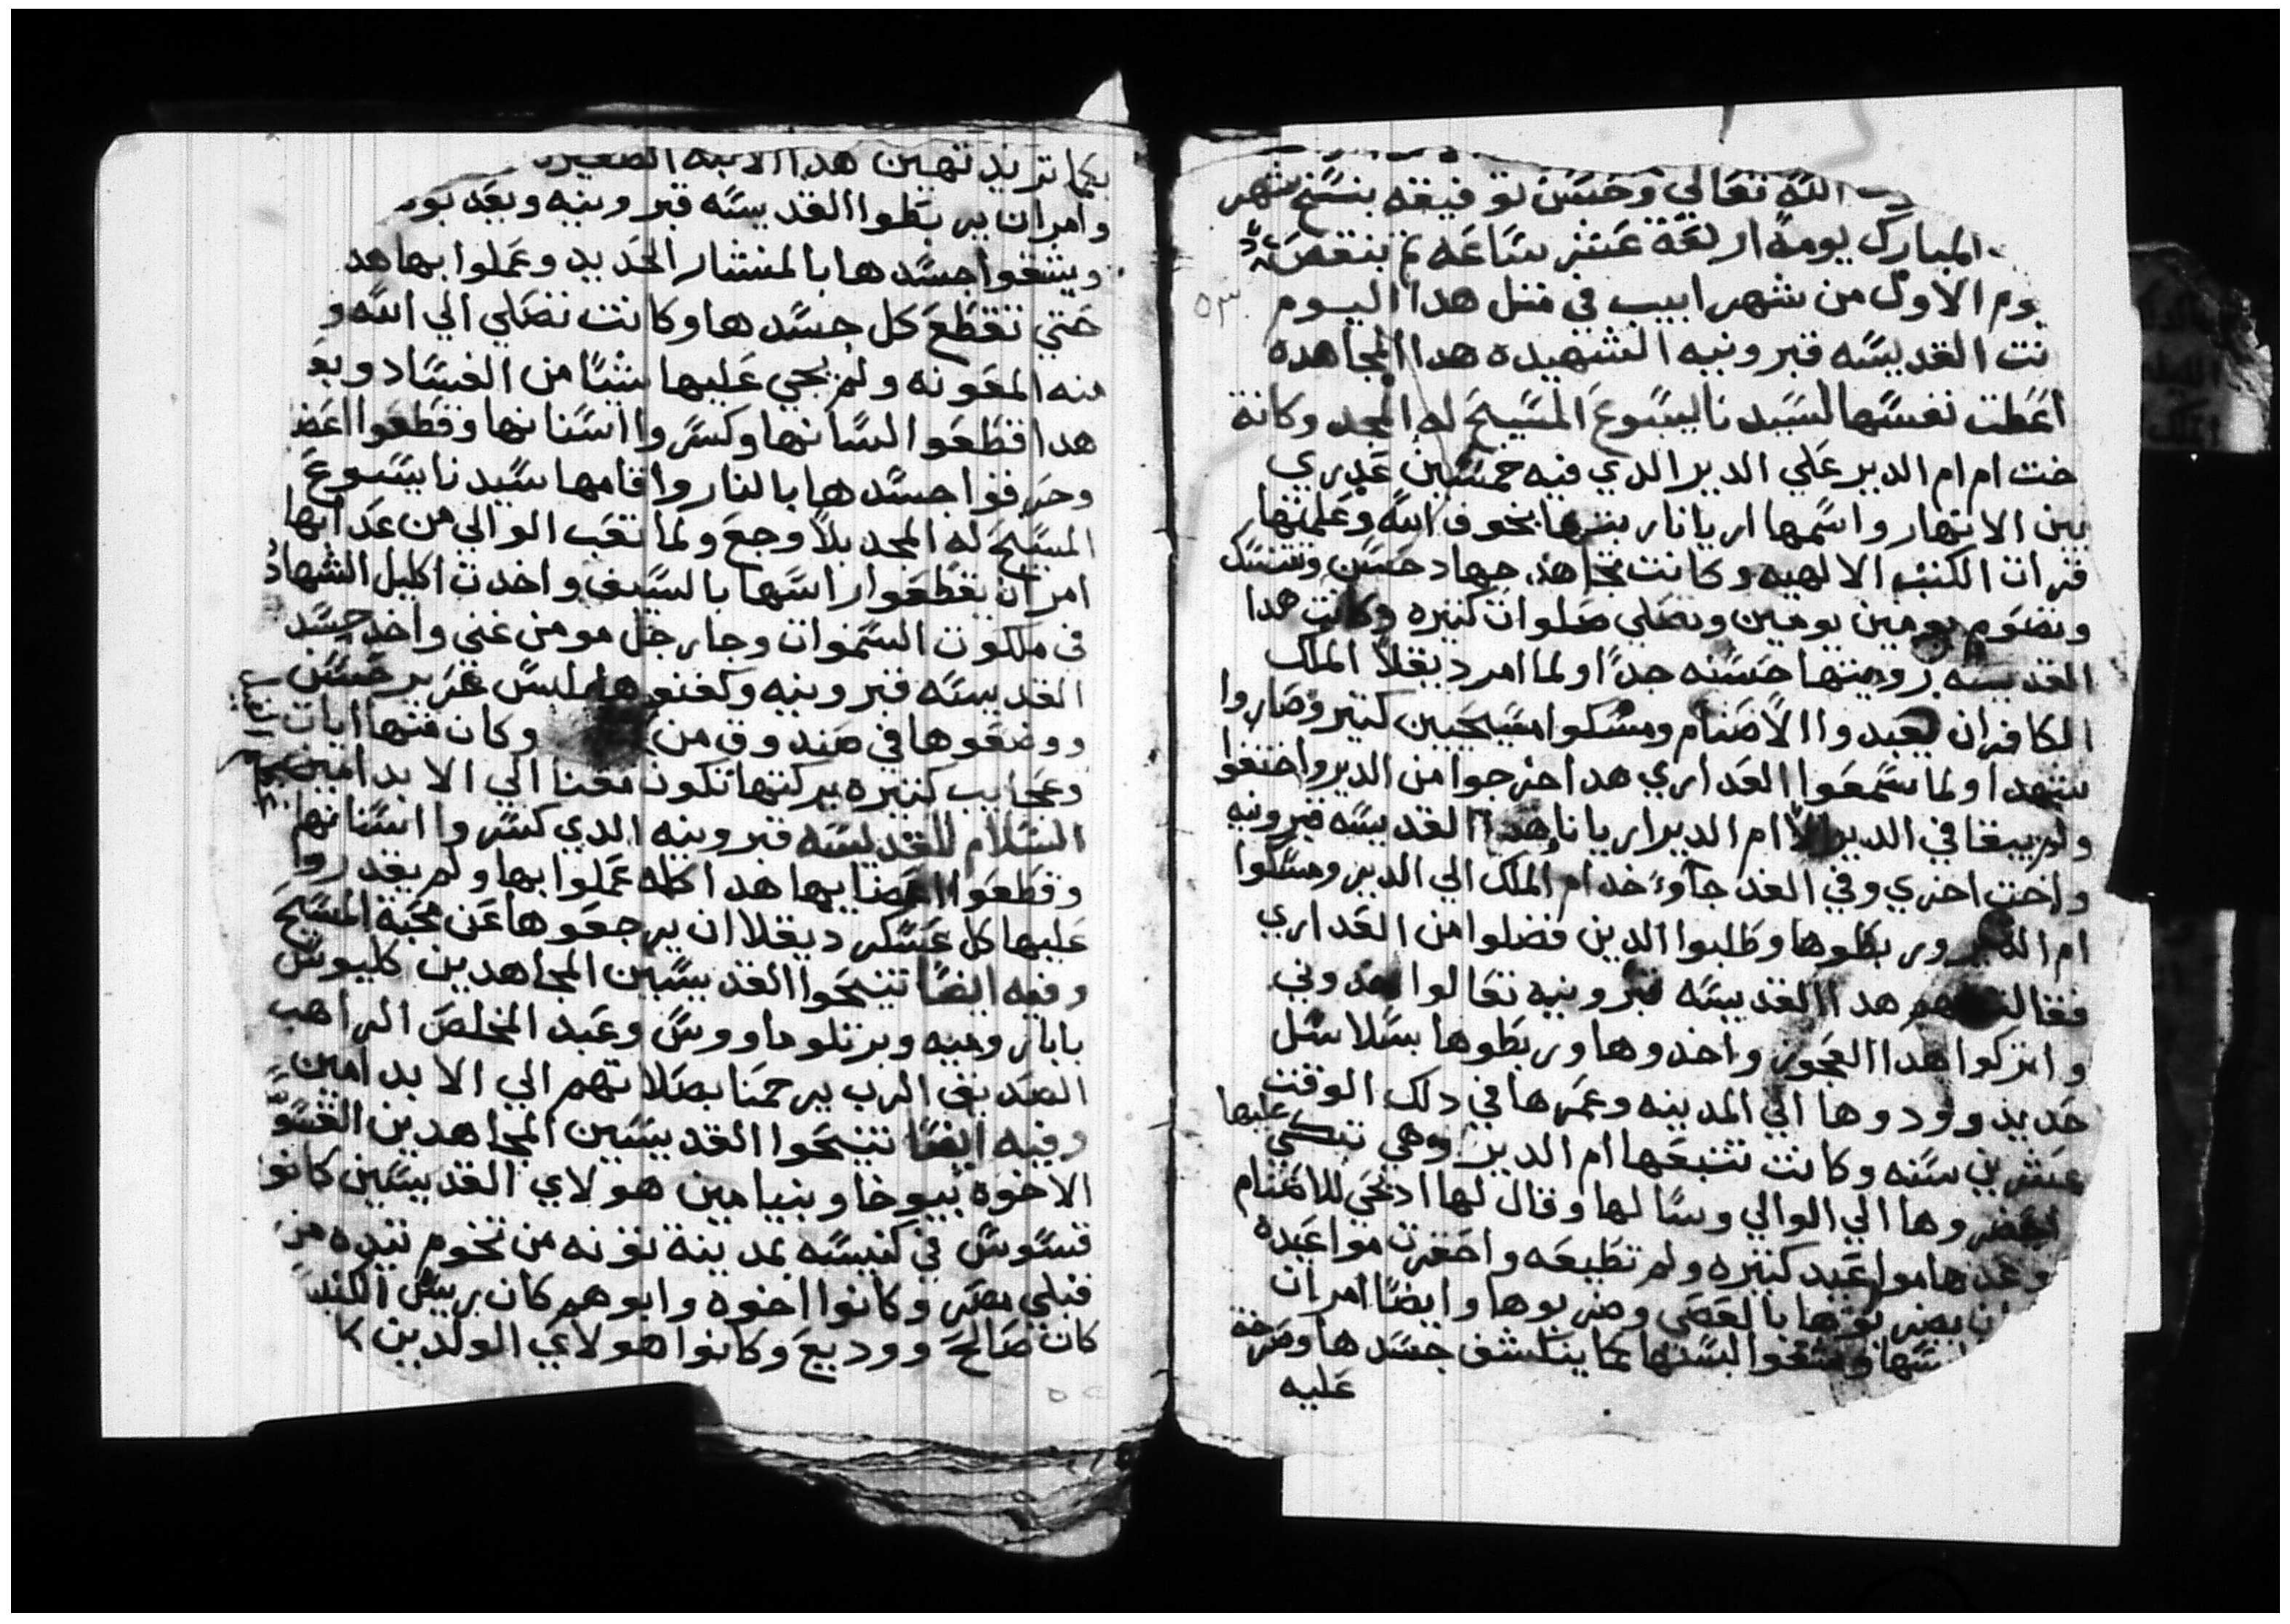 الله تعالي وحسن توفيقه بنسخ شهر
المبارك يومه اربعة عشر ساعه ثم بنقص
يوم الاول من شهر ابيب في متل هدا اليوم
٥٣
نت القديسه قبرونيه الشهيده هدا المجاهده
اعطت نفسها لسيدنا ليسوع المسيح له المجد وكانة
خت ام ام الدير علي الدير الدي فيه خمسين عدري
بين الانهار واسمها اريانا ربتها بخوف الله وعلمتها
قرات الكتب الالهيه وكانت تجاهد جهاد حسن وتنسك
وتصوم يومين يومين وتصلي صلوات كتيره وكانت هدا
القديسه رويتها حسنه جدًا ولما امر ديقلا الملك
الكافر ان يعبدوا الاصنام ومسكوا مسيحيين كتير وصاروا
شهدا ولما سمعوا العداري هدا اخرجوا من الدير واختفوا
ولم يبقا في الدير الا ام الدير اريانا هدا القديسه قبرونيه
واخت اخري وفي الغد جاوء خدام الملك الي الدير ومسكوا
ام الدير وربطوها وطلبوا الدين فضلوا من العداري
فقالت لهم هدا القديسه قبرونيه تعالوا خدوني
واتركوا هدا العجوز واخدوها وربطوها بسلاسل
حديد وودوها الي المدينه وعمرها في دلك الوقت
عشرين سنه وكانت تتبعها ام الدير وهي تبكي عليها
احضروها الي الوالي وسالها وقال لها ادبحي للاصنام
وعدها مواعيد كتيره ولم تطيعه واحقرت مواعيده
ان يضربوها بالعصي وضربوها وايضا امر ان
وشقوا لبسها لكما ينكشف جسدها وصرخة
عليه
بكما تريد تهين هدا الابنه الصغيره
وامر ان يربطوا القديسه قبرونيه وبعد
ويشقوا جسدها بالمنشار الحديد وعملوا بها هد
حتي تقطع كل جسدها وكانت تصلي الي الله و
منه المعونه ولم يجي عليها شيئا من الفساد وبع
هدا قطعوا لسانها وكسروا اسنانها وقطعوا اعض
وحرقوا جسدها بالنار واقامها سيدنا يسوع
المسيح له المجد بلا وجع ولما تعب الوالي من عدابها
امر ان يقطعوا راسها بالسيف واخدت اكليل الشهاد
في ملكوت السموات وجا رجل مومن غني واخد جسد
القديسه قبرونيه وكفنوها بلبس غزير حسن
ووضعوها في صندوق من وكان منها ايات
وعجايب كتيره بركتها تكون معنا الي الابد امين
السلام للقديسه قبرونيه الدي كسروا اسنانها
وقطعوا اعضايها هدا كله عملوا بها ولم يقدروا
عليها كل عسكر ديقلا ان يرجعوها عن محبة المسيح
وفيه ايضا تنيحوا القديسين المجاهدين كليوس
بابا روميه وبرتلوماووس وعبد المخلص الراهب
الصديق الرب يرحمنا بصلاتهم الي الابد امين
وفيه ايضا تنيحوا القديسين المجاهدين القسو
الاخوه بيوخا وبنيامين هولاي القديسين كانوا
قسوس في كنيسه بمدينة تونه من تخوم تنده من
قبلي مصر وكانوا اخوه وابوهم كان ريس الكنيس
كان صالح ووديع وكانوا هولاي الولدين كا
٥٢